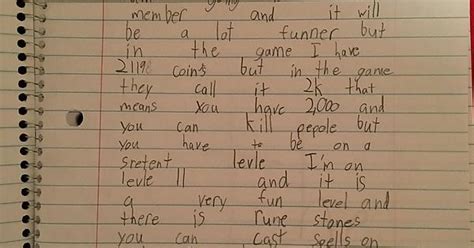 going
member and it will
be a lot funner but
in the game I have
21198 coins but in the game
they call it 2k that
means you have 2,000 and
you can kill pepole but
you have to be on a
sretent levle I'm on
levle 11 and it is
a very fun level and
there is rune stones
you can cast spells on